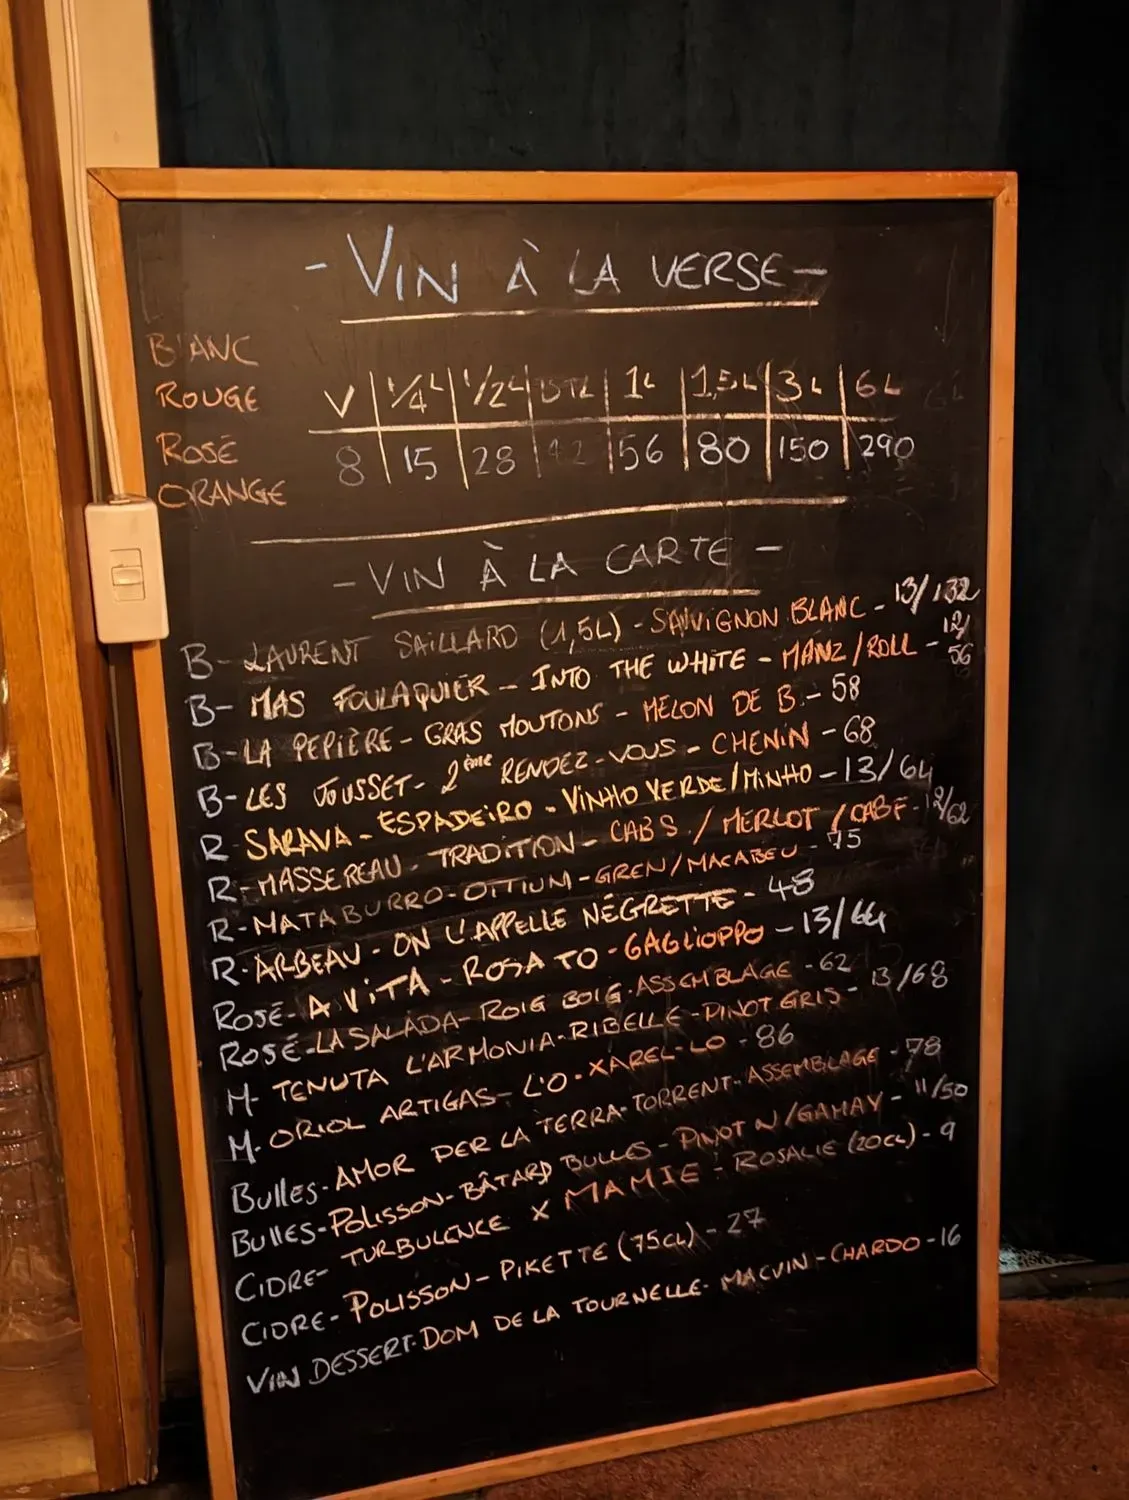 - VIN À LA VERSE -
BLANC
ROUGE
ROSÉ
ORANGE
V | 1/4 L | 1/2 L | BTL | 1L | 1,5L | 3L | 6L
8 | 15 | 28 | 42 | 56 | 80 | 150 | 290
- VIN À LA CARTE -
B- LAURENT SAILLARD (1,5L) - SAUVIGNON BLANC - 13/132
B- MAS FOULAQUIER - INTO THE WHITE - MANZ/ROLL - 12/56
B- LA PEPIÈRE - GRAS MOUTONS - MELON DE B. - 58
B- LES JOUSSET - 2ème RENDEZ-VOUS - CHENIN - 68
R SARAVA - ESPADEIRO - VINHO VERDE/MINHO - 13/64
R- MASSEREAU - TRADITION - CABS / MERLOT / CABF - 12/62
R- MATABURRO - OITIUM - GREN/MACABEU - 75
R- ARBEAU - ON L'APPELLE NÉGRETTE - 48
ROSÉ- A VITA - ROSATO - GAGLIOPPO - 13/64
ROSÉ- LA SALADA - ROIG BOIG - ASSEMBLAGE - 62
M- TENUTA L'ARMONIA - RIBELLE - PINOT GRIS - 13/68
M- ORIOL ARTIGAS - L'O - XAREL-LO - 86
BULLES- AMOR PER LA TERRA - TORRENT - ASSEMBLAGE - 78
BULLES- POLISSON - BÂTARD BULLES - PINOT N/GAMAY - 11/50
CIDRE- TURBULENCE X MAMIE - ROSALIE (20CL) - 9
CIDRE- POLISSON - PIKETTE (75CL) - 27
VIN DESSERT- DOM DE LA TOURNELLE - MACVIN - CHARDO - 16